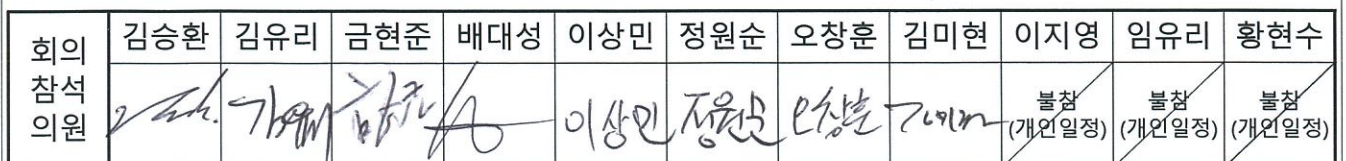 회의 참석 의원
김승환 김유리 금현준 배대성 이상민 정원순 오창훈 김미현 이지영 임유리 황현수
이상민 정원순 오창훈 불참 불참 불참
(개인일정) (개인일정) (개인일정)